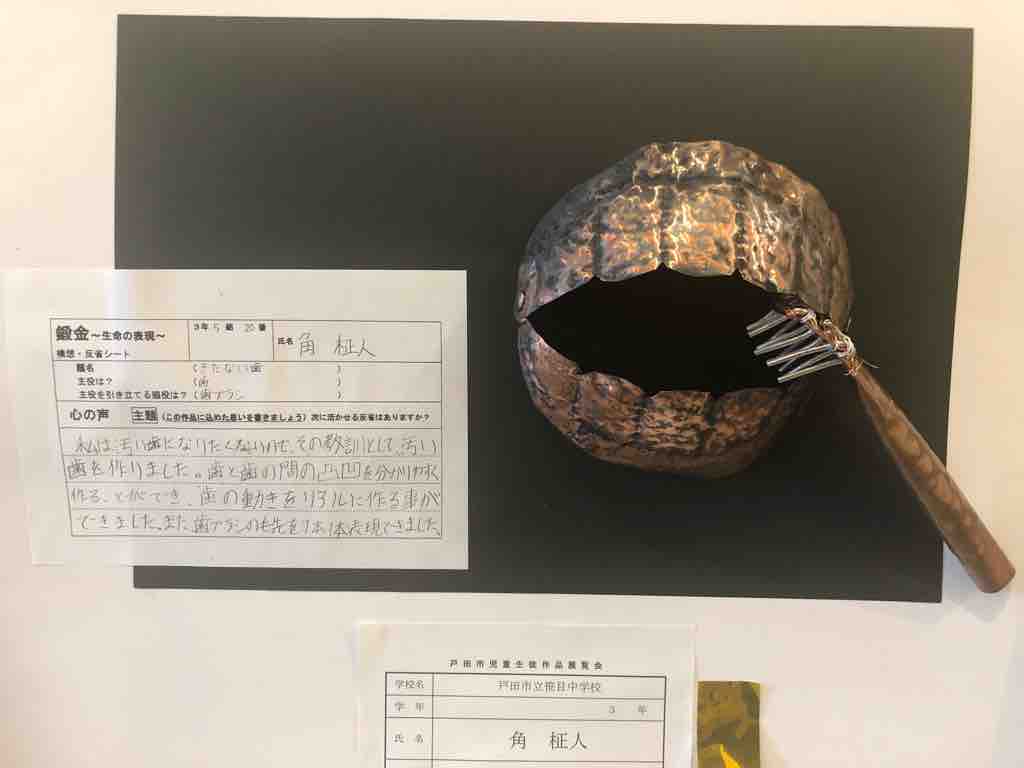 鍛金～生命の表現～
構想・反省シート
3年 5 組 20 番
氏名 角 柾人
題名 (きたない歯 )
主役は? (歯 )
主役を引き立てる脇役は? (歯ブラシ )
心の声 主題 (この作品に込めた思いを書きましょう) 次に活かせる反省はありますか?
私は、汚い歯になりたくないので、その教訓として、汚い
歯を作りました。歯と歯の間の凸凹を分かりやすく
作ることができ、歯の動きをリアルに作る事が
できました。また歯ブラシの毛先を1本1本表現できました。
戸田市児童生徒作品展覧会
学校名 戸田市立笹目中学校
学 年 3 年
氏 名 角 柾人